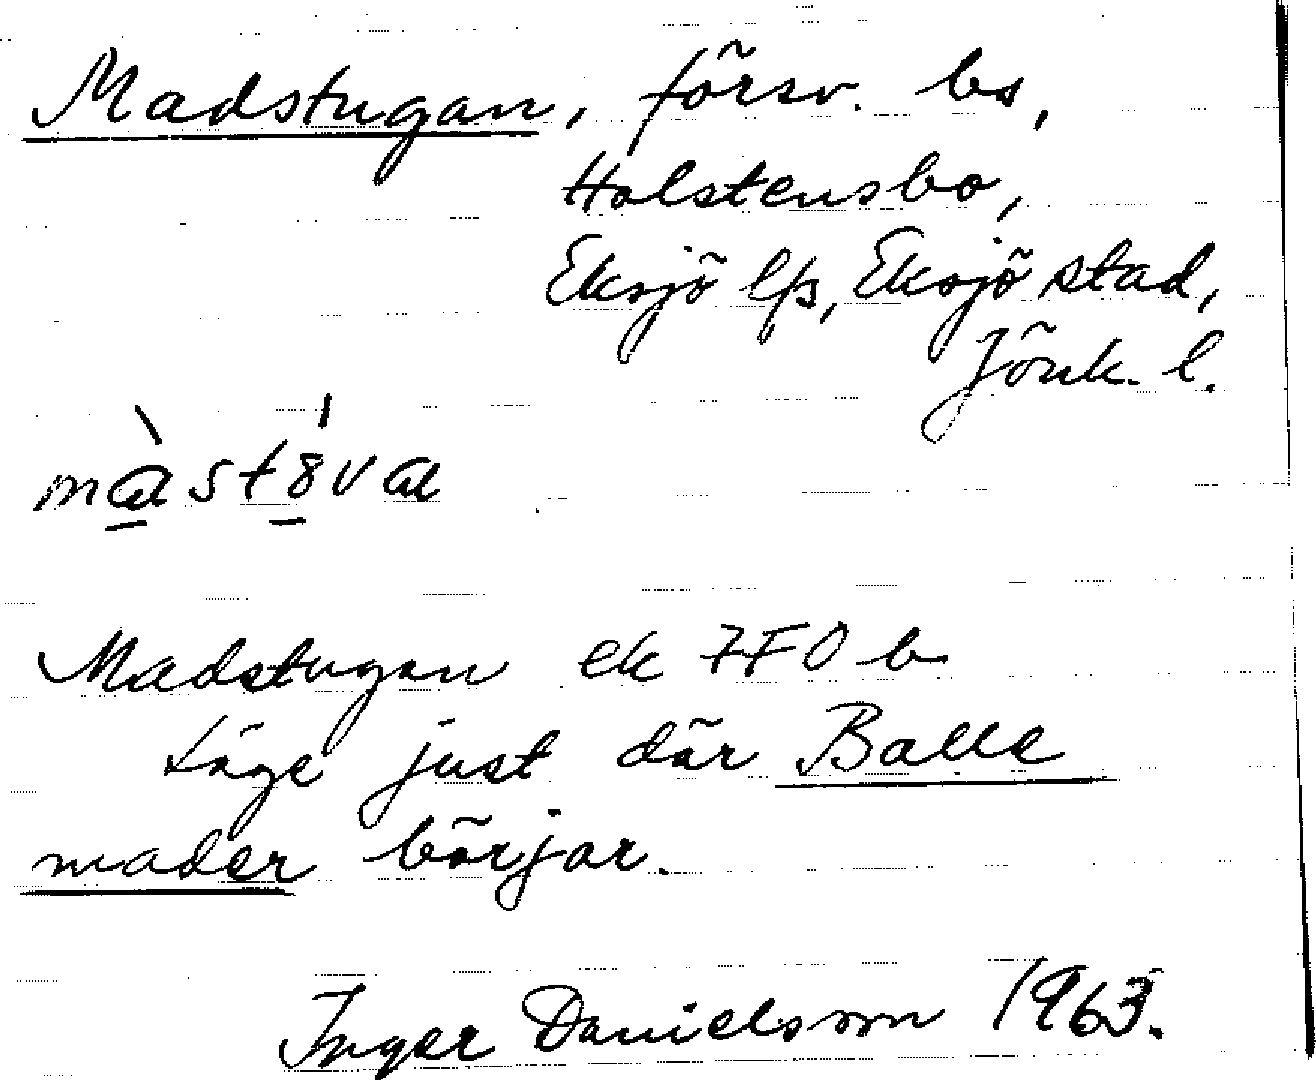 Madstugan, försv. bs,
Holstensbo,
Eksjö lfs, Eksjö stad,
Jönk. l.
màst8va
Madstugan ek 7F0 b
Läge just där Balle
mader börjar.
Inger Danielsson 1963.